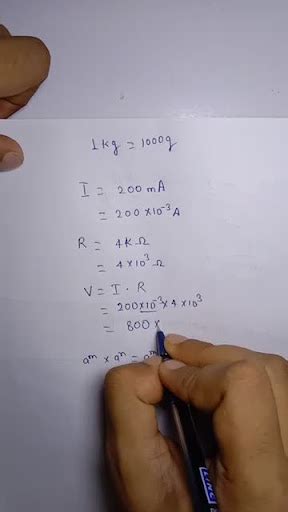 1kg = 1000g
I = 200 mA
= 200 × 10⁻³ A
R = 4K Ω
= 4 × 10³ Ω
V = I · R
= 200 × 10⁻³ × 4 × 10³
= 800 ×
aᵐ × aⁿ = aᵐ